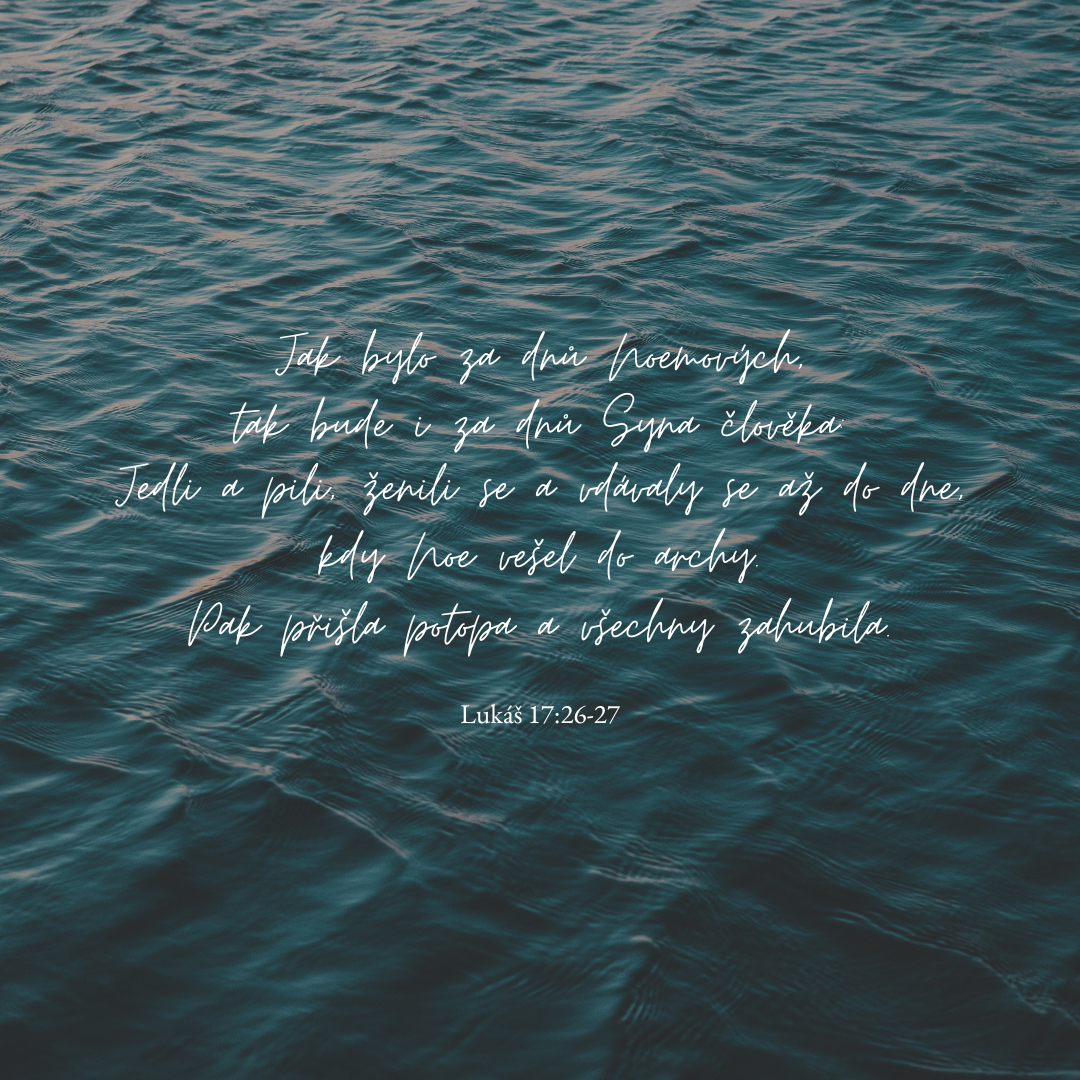 Jak bylo za dnů Noemových,
tak bude i za dnů Syna člověka:
Jedli a pili, ženili se a vdávaly se až do dne,
kdy Noe vešel do archy.
Pak přišla potopa a všechny zahubila.
Lukáš 17:26-27